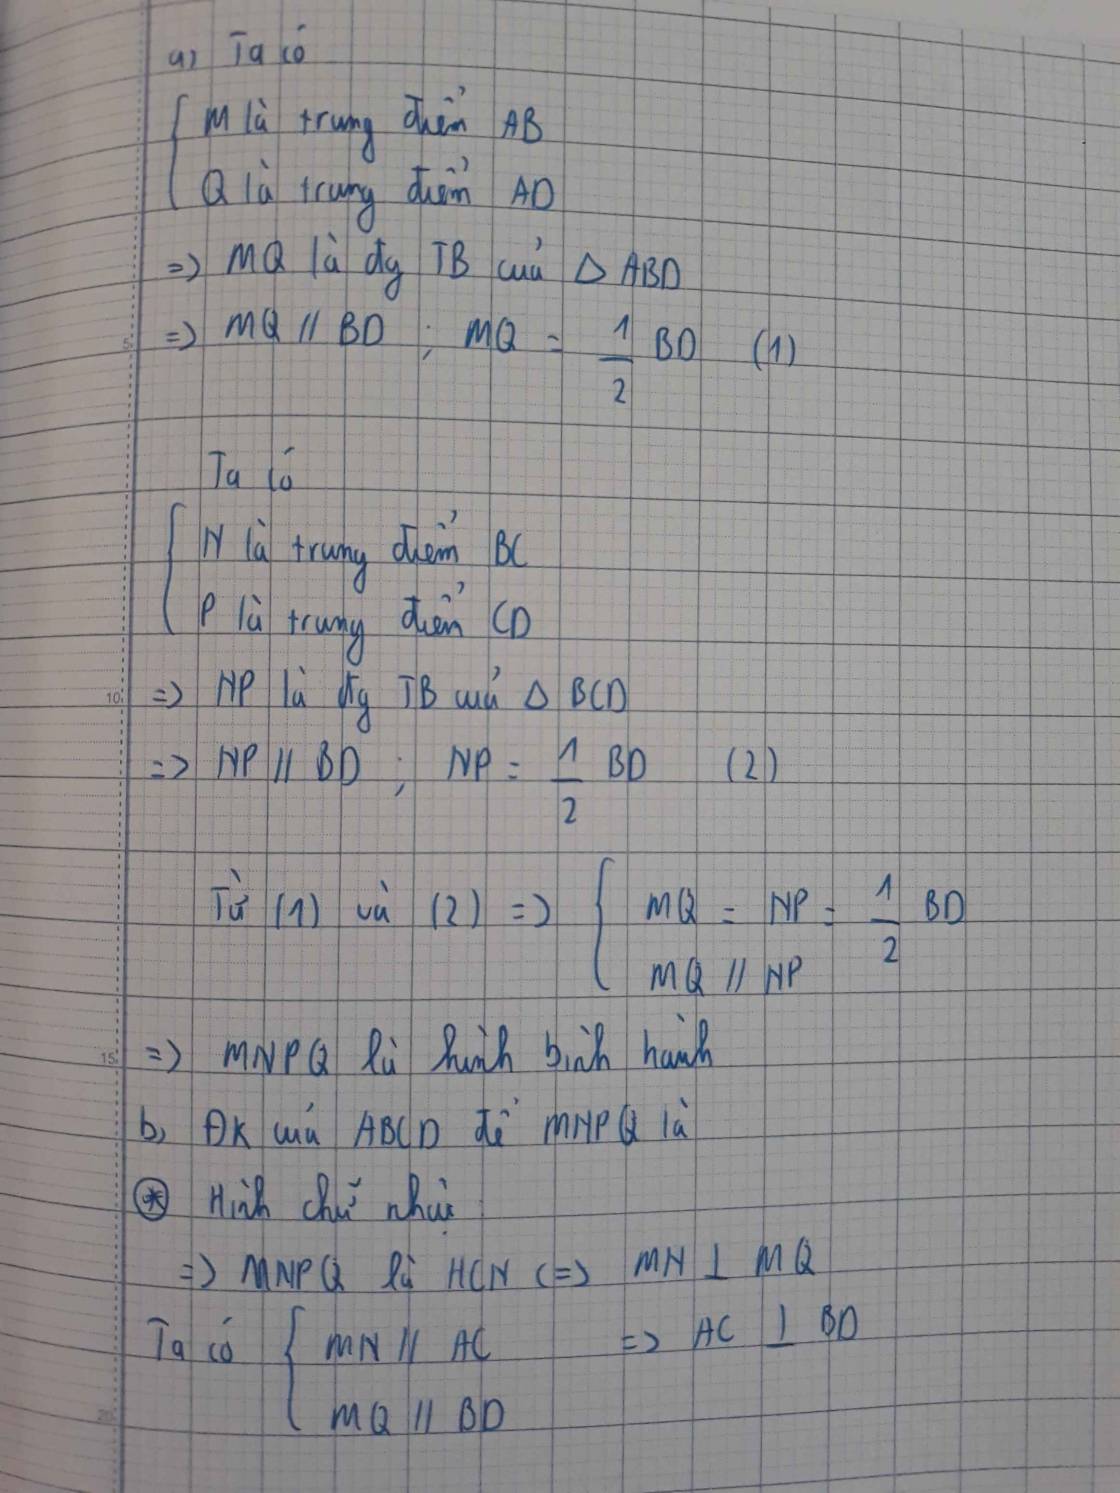 a) Ta có
M là trung điểm AB
Q là trung điểm AD
=> MQ là đg TB của Δ ABD
=> MQ // BD ; MQ = 1/2 BD (1)
Ta có
N là trung điểm BC
P là trung điểm CD
=> NP là đg TB của Δ BCD
=> NP // BD ; NP = 1/2 BD (2)
Từ (1) và (2) => { MQ = NP = 1/2 BD
MQ // NP
=> MNPQ là hình bình hành
b) ĐK của ABCD để MNPQ là
* Hình chữ nhật
=> MNPQ là HCN <=> MN ⊥ MQ
Ta có { MN // AC => AC ⊥ BD
MQ // BD
5
10
15
20